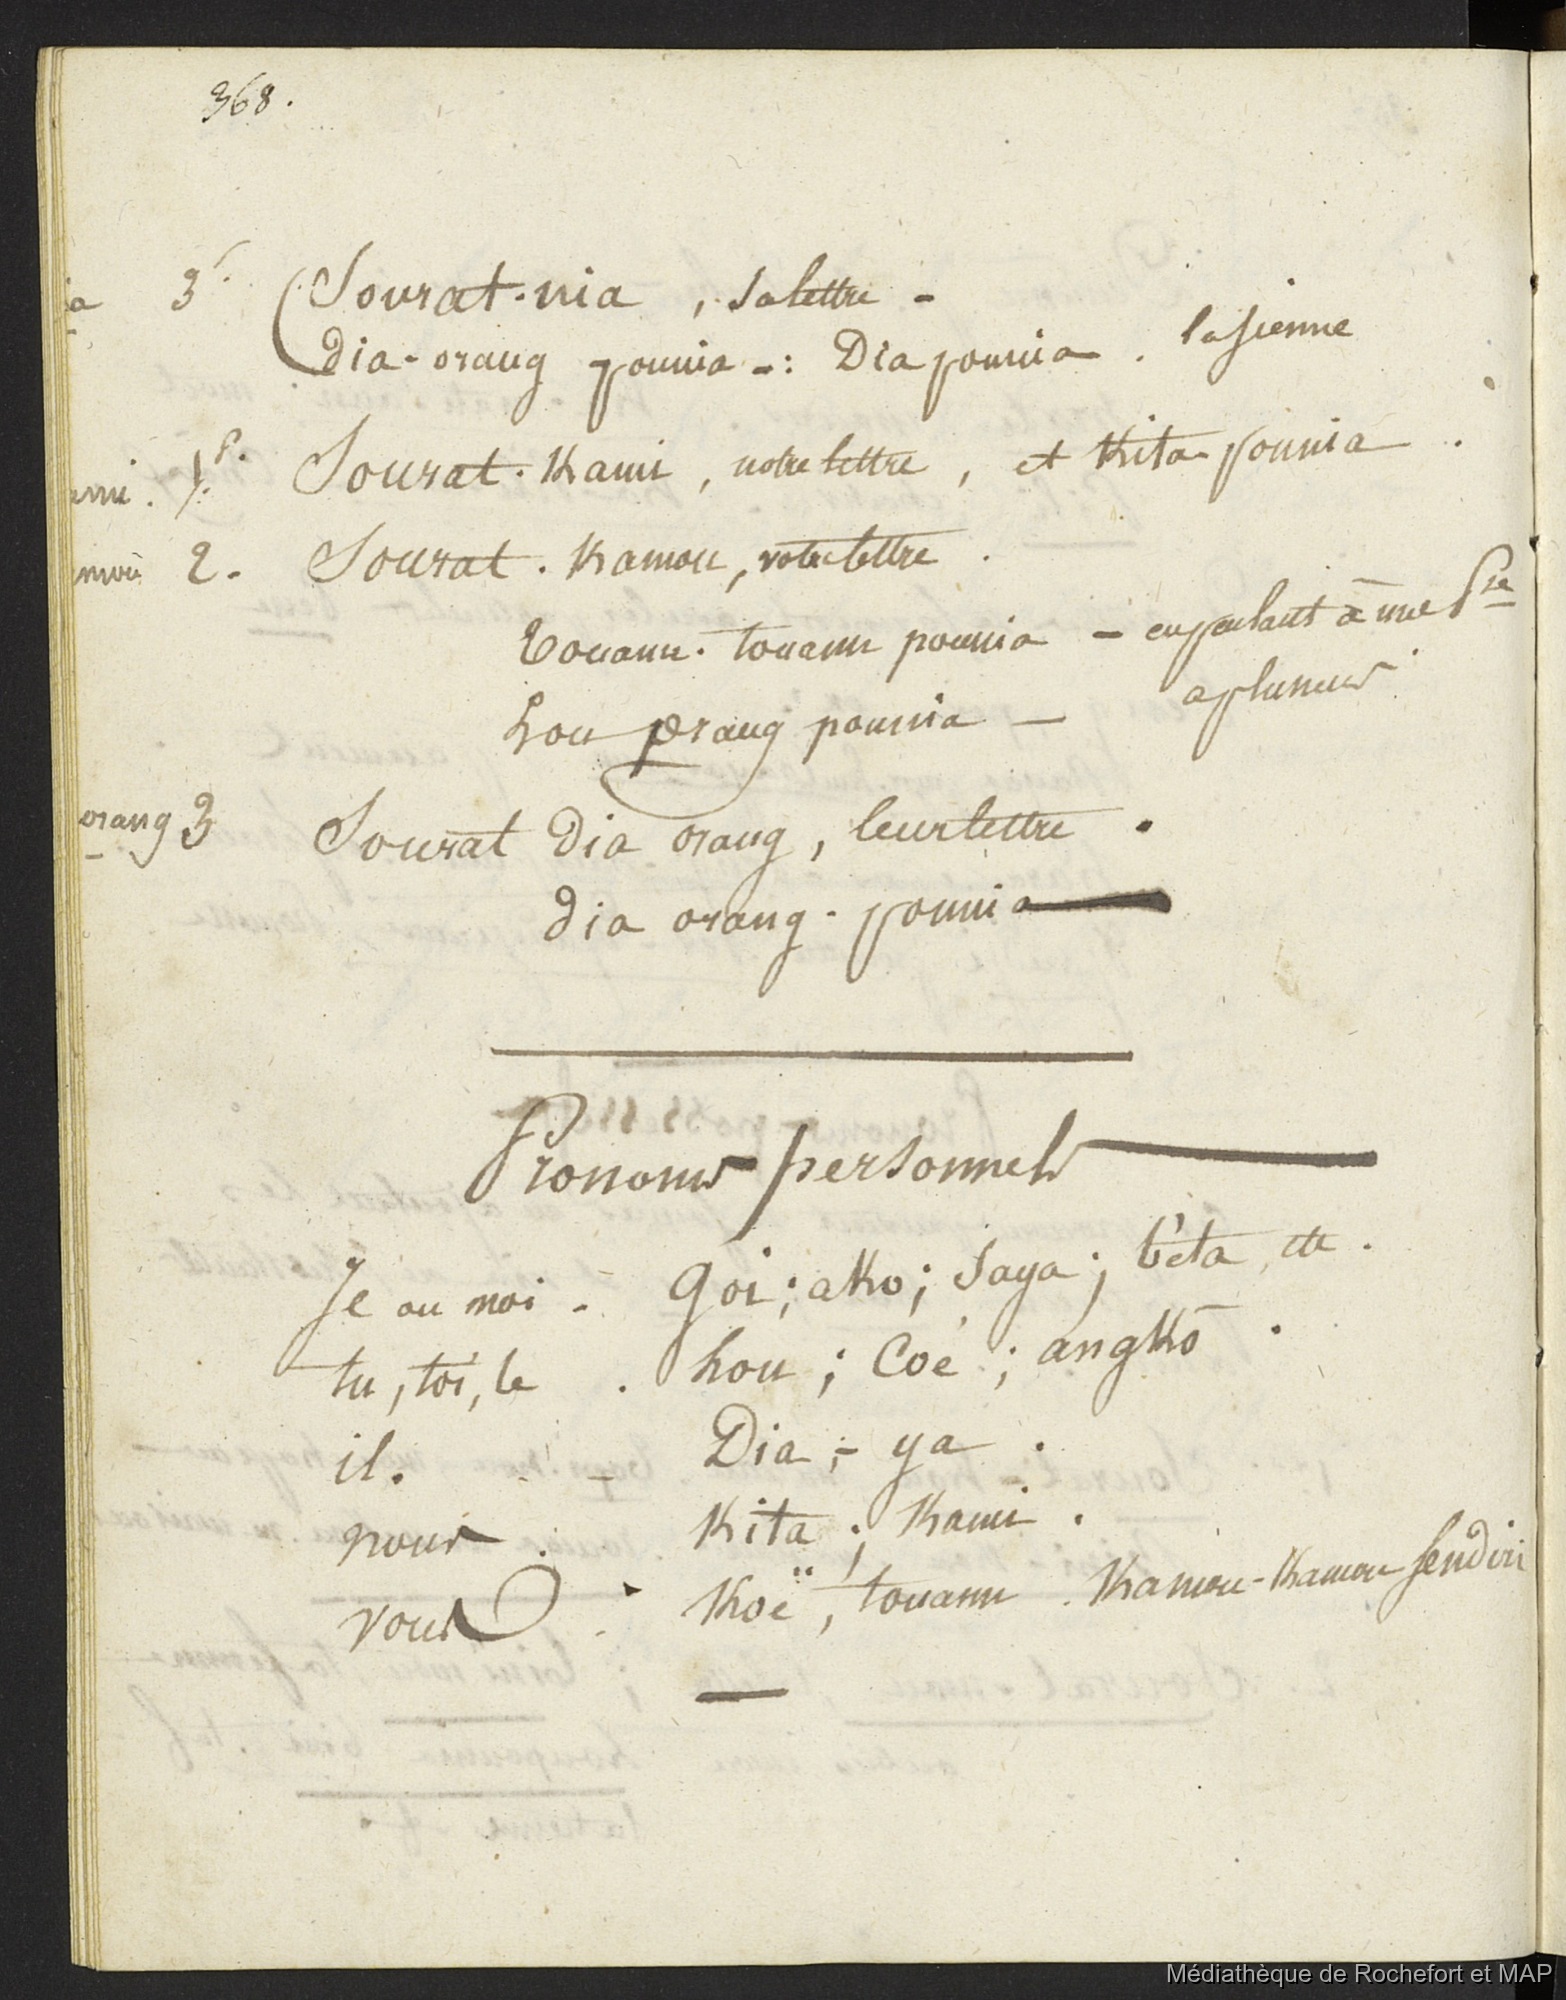 368.
ia 3e. Sourat-nia, sa lettre -
dia-orang pounia -: Dia pounia. la sienne
ami. 1e. Sourat. Kami, notre lettre, et Kita pounia.
mou 2. Sourat. Kamou, votre lettre.
Touann. touann pounia - en parlant à une Pre
Lou orang pounia - a plusieurs
orang 3 Sourat Dia orang, leur lettre.
dia orang. pounia
Pronoms personnels
Je ou moi - Goi; ako; saya; béta, etc.
tu, toi, te. Lou; Coé; angkō.
il. - Dia; - ya.
nous. Kita; Kami.
vous. Koë, touann. Kamou-Kamou sendiri
Médiathèque de Rochefort et MAP